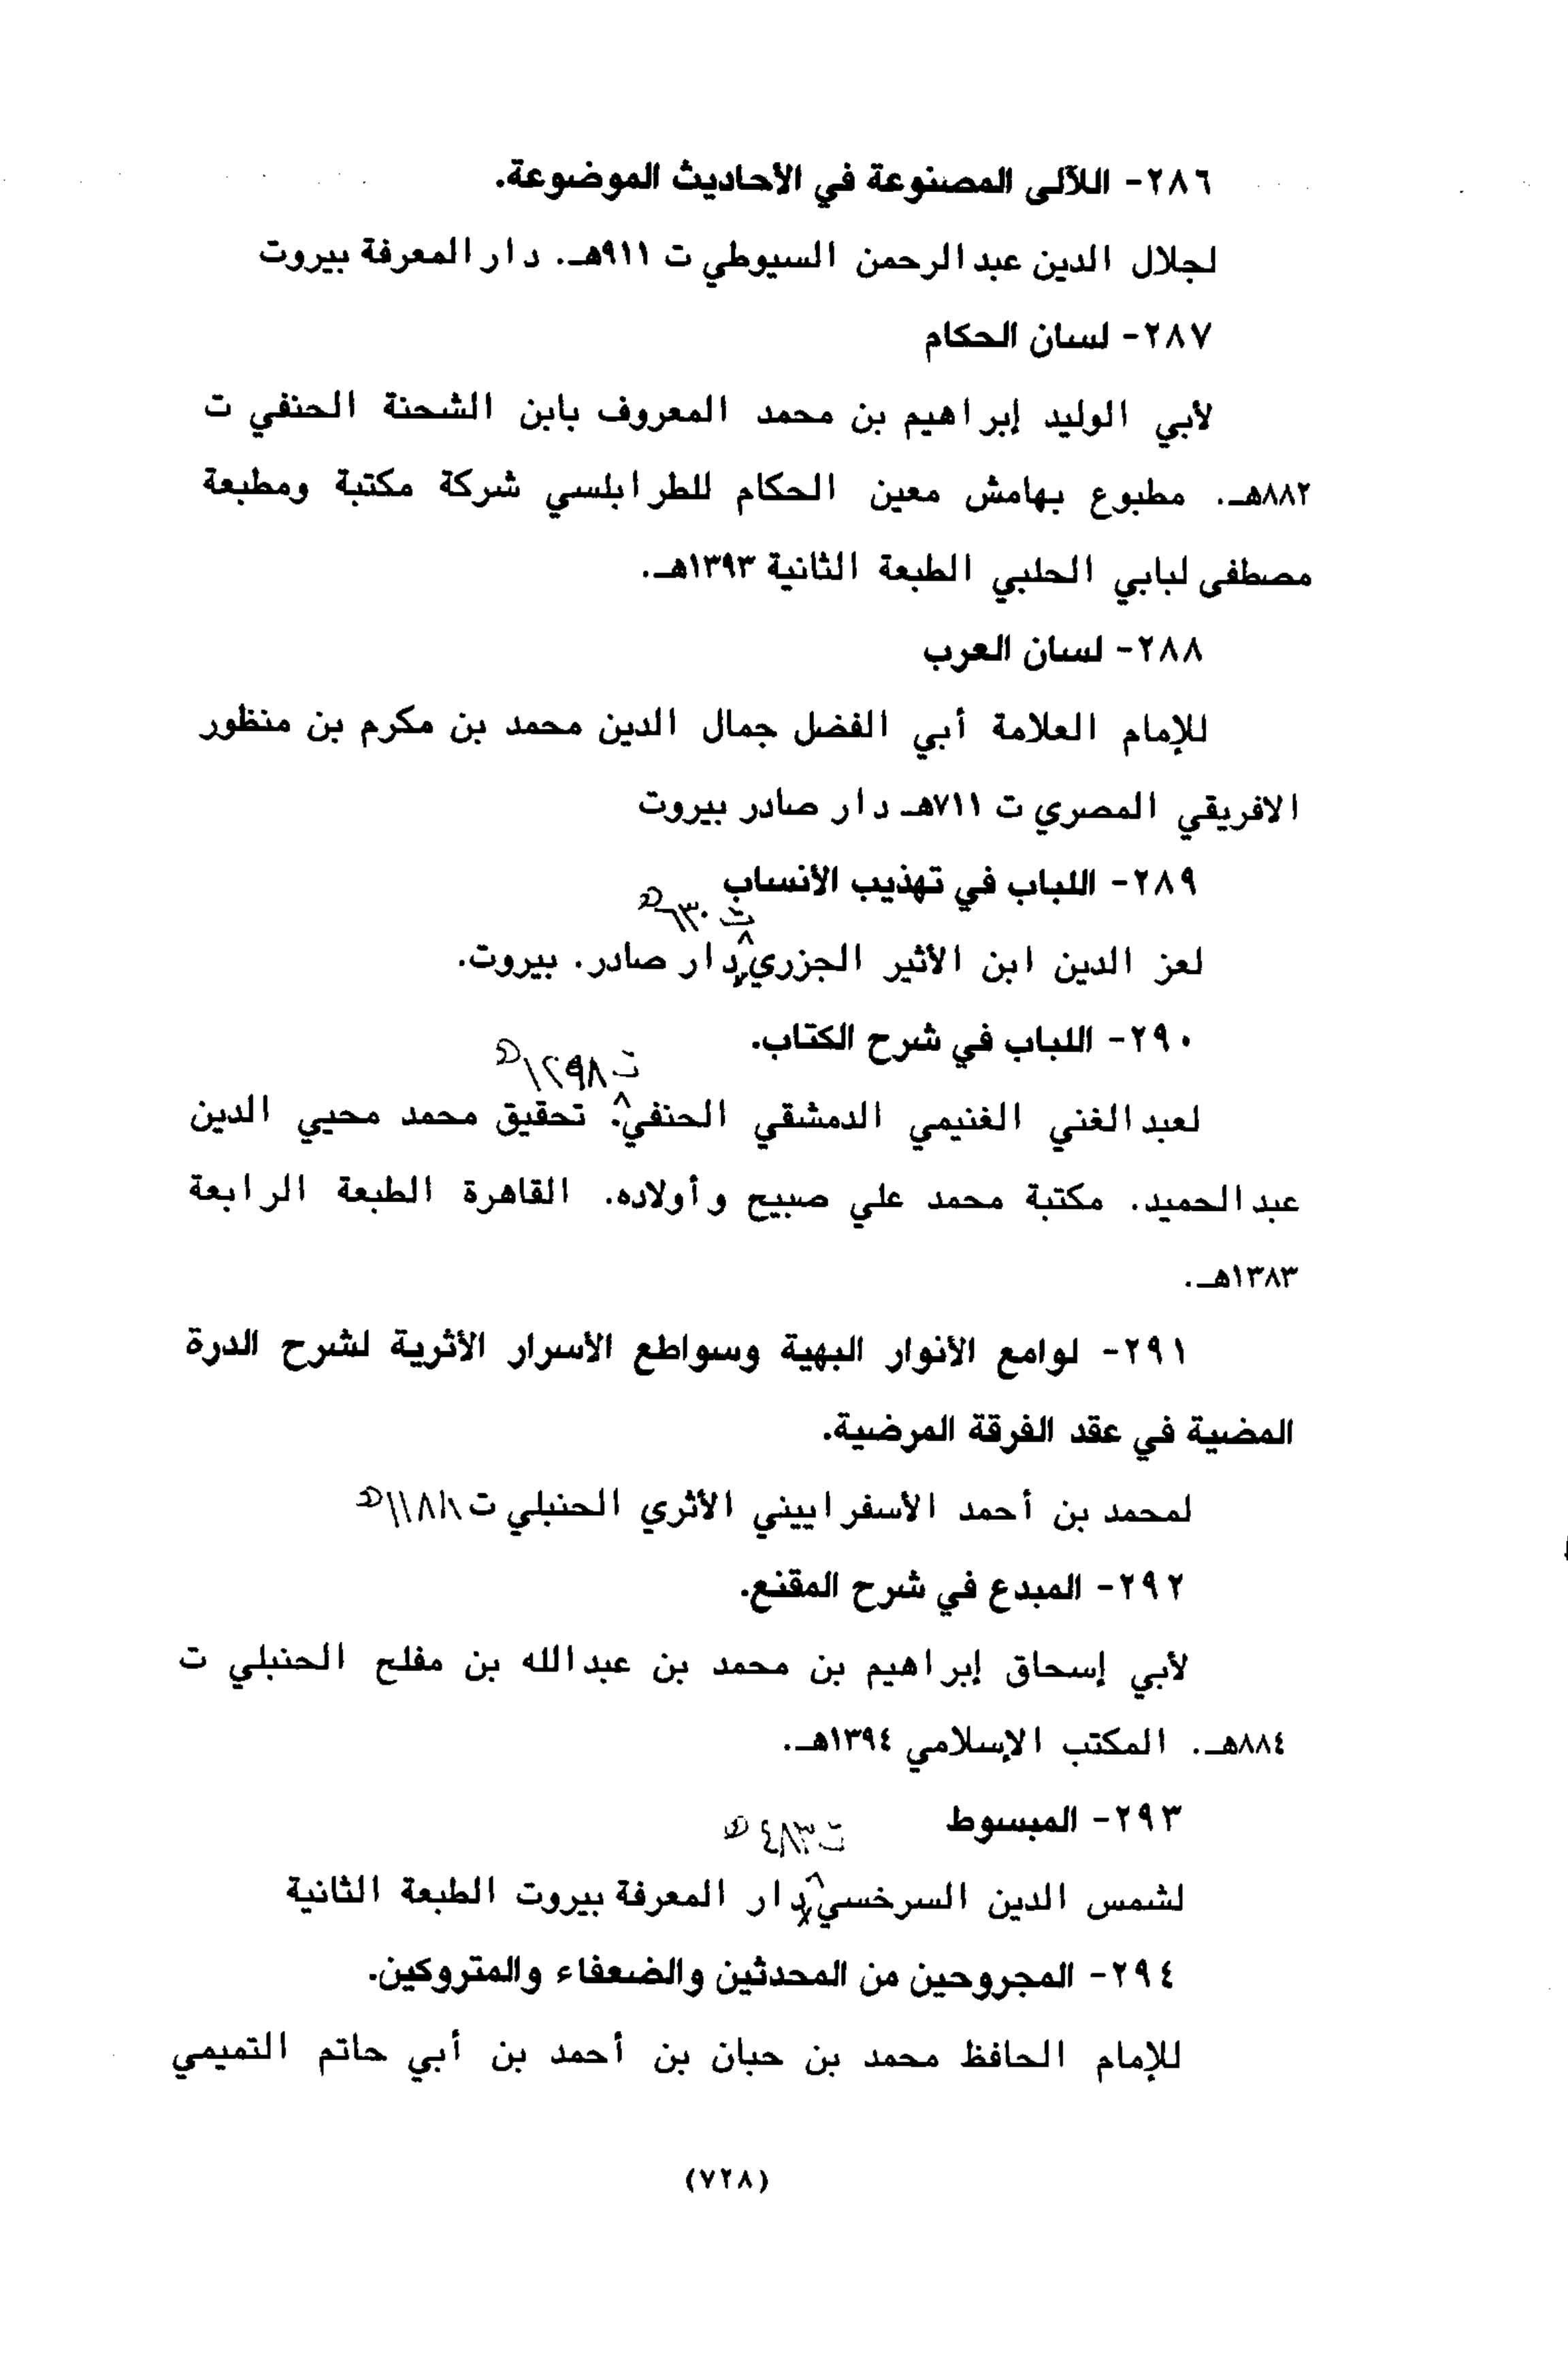 ٢٨٦- اللآلى المصنوعة في الأحاديث الموضوعة.
لجلال الدين عبدالرحمن السيوطي ت ٩١١هـ. دار المعرفة بيروت
٢٨٧- لسان الحكام
لأبي الوليد إبراهيم بن محمد المعروف بابن الشحنة الحنفي ت
٨٨٢هـ. مطبوع بهامش معين الحكام للطرابلسي شركة مكتبة ومطبعة
مصطفى لبابي الحلبي الطبعة الثانية ١٣٩٣هـ.
٢٨٨- لسان العرب
للإمام العلامة أبي الفضل جمال الدين محمد بن مكرم بن منظور
الافريقي المصري ت ٧١١هـ دار صادر بيروت
٢٨٩- اللباب في تهذيب الأنساب
ت ٦٣٠هـ
لعز الدين ابن الأثير الجزري دار صادر. بيروت.
٢٩٠- اللباب في شرح الكتاب.
ت ١٢٩٨هـ
لعبدالغني الغنيمي الدمشقي الحنفي. تحقيق محمد محيي الدين
عبدالحميد. مكتبة محمد علي صبيح وأولاده. القاهرة الطبعة الرابعة
١٣٨٣هـ.
٢٩١- لوامع الأنوار البهية وسواطع الأسرار الأثرية لشرح الدرة
المضية في عقد الفرقة المرضية.
لمحمد بن أحمد الأسفراييني الأثري الحنبلي ت ١١٨٨هـ
٢٩٢- المبدع في شرح المقنع.
لأبي إسحاق إبراهيم بن محمد بن عبدالله بن مفلح الحنبلي ت
٨٨٤هـ. المكتب الإسلامي ١٣٩٤هـ.
٢٩٣- المبسوط
ت ٤٨٣هـ
لشمس الدين السرخسي دار المعرفة بيروت الطبعة الثانية
٢٩٤- المجروحين من المحدثين والضعفاء والمتروكين.
للإمام الحافظ محمد بن حبان بن أحمد بن أبي حاتم التميمي
(٧٢٨)